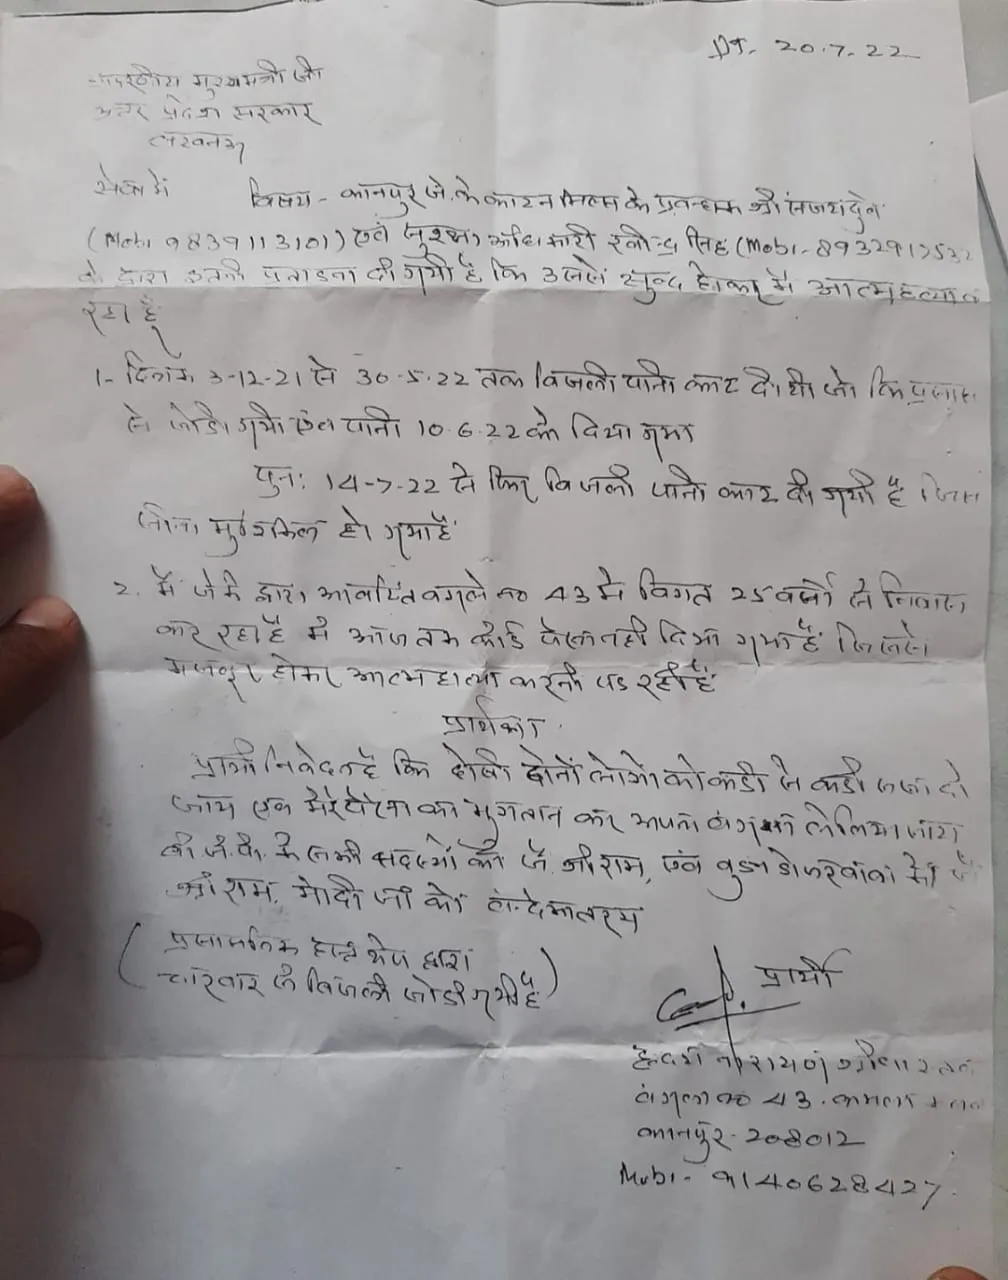 Dt. 20.7.22
मुख्यमंत्री जी
उत्तर प्रदेश सरकार
लखनऊ
सेवा में विषय - कानपुर जे.के काटन मिल्स के प्रबन्धक श्री
(Mobi 9839113101) एवं सुरक्षा अधिकारी रवीन्द्र सिंह (Mobi-
के द्वारा इतनी प्रताडना दी गयी है कि उससे होकर मैं आत्महत्या
रहा हूँ
1- दिनांक 3-12-21 से 30.5.22 तक बिजली पानी काट दी थी जो कि
से जोडी गयी एवं पानी 10.6.22 को दिया गया
पुनः 14-7-22 से फिर बिजली पानी काट दी गयी है जिस
जीना मुश्किल हो गया है
2. मैं जे के द्वारा आवंटित बंगले no 43 में विगत 25 वर्षो से निवास
कर रहा हूँ मे आज तक कोई पैसा नही दिया गया है जिससे
मजबूर होकर आत्महत्या करनी पड रही है
प्रार्थना
प्रार्थी निवेदन है कि दोषी दोनों लोगों को कडी से कडी सजा दी
जाय एवं मेरे पैसा का भुगतान कर अपना बंगला ले लिया जाय
बी.जे.पी. के सभी सदस्यों को जै श्री राम, एवं वालों को जै
श्री राम, मोदी जी को वन्देमातरम
(प्रशासनिक हस्तक्षेप द्वारा
चार बार से बिजली जोडी गयी है)
प्रार्थी
नारायण
बंगला no 43.
कानपुर - 208012
Mobi - 9140628427.